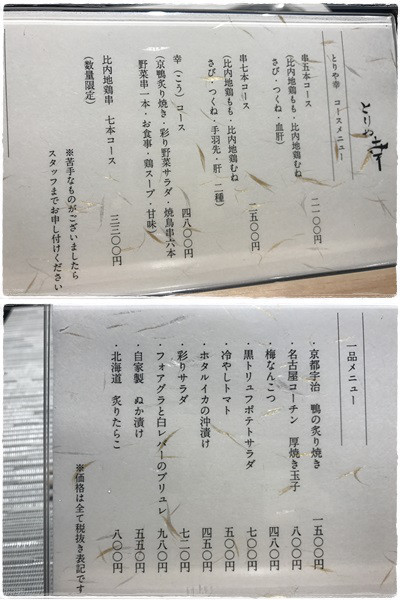 とりや幸
とりや幸　コースメニュー
串五本コース
(比内地鶏もも・比内地鶏むね
さび・つくね・血肝)
二一〇〇円
串七本コース
(比内地鶏もも・比内地鶏むね
さび・つくね・手羽先・肝　二種)
二五〇〇円
幸（こう）コース
(京鴨炙り焼き・彩り野菜サラダ・焼鳥串六本
野菜串一本・お食事・鶏スープ・甘味)
四八〇〇円
比内地鶏串　七本コース
(数量限定)
三三〇〇円
※苦手なものがございましたら
スタッフまでお申し付けください
一品メニュー
・京都宇治　鴨の炙り焼き　一五〇〇円
・名古屋コーチン　厚焼き玉子　八〇〇円
・梅なんこつ　四八〇円
・黒トリュフポテトサラダ　七〇〇円
・冷やしトマト　五〇〇円
・ホタルイカの沖漬け　四五〇円
・彩りサラダ　七二〇円
・フォアグラと白レバーのブリュレ　九八〇円
・自家製　ぬか漬け　五五〇円
・北海道　炙りたらこ　八〇〇円
※価格は全て税抜き表記です